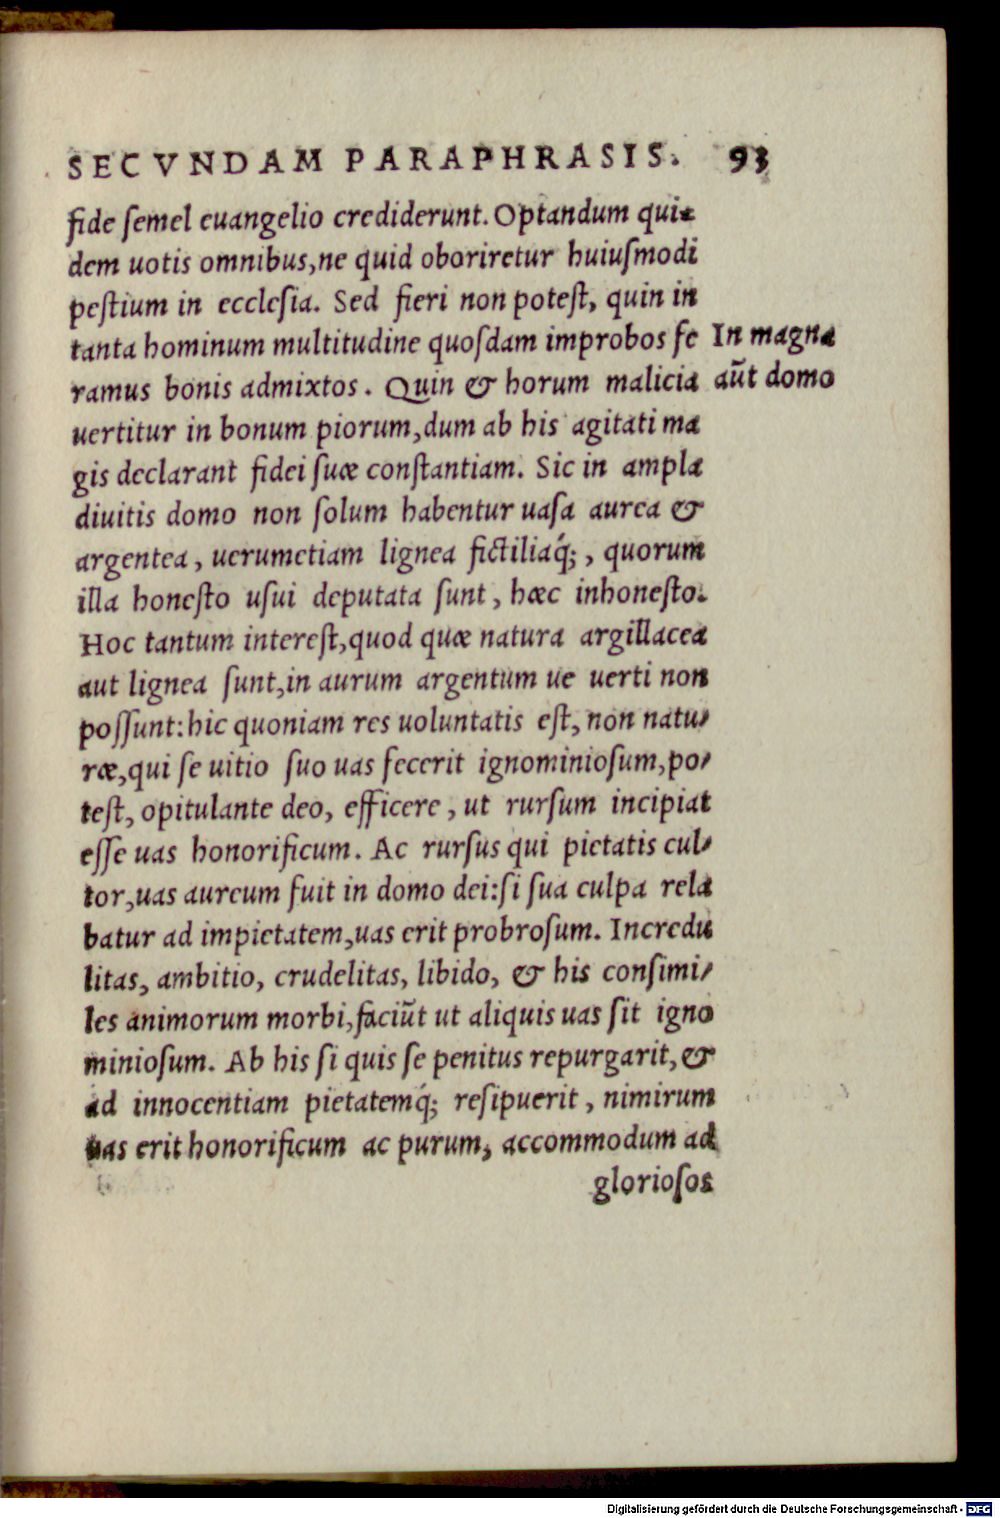 SECVNDAM PARAPHRASIS. 93
fide ſemel euangelio crediderunt. Optandum qui⸗
dem uotis omnibus,ne quid oboriretur huiuſmodi
peſtium in eccleſia. Sed fieri non poteſt, quin in
tanta hominum multitudine quoſdam improbos fe
In magna
ramus bonis admixtos. Quin & horum malicia
aūt domo
uertitur in bonum piorum,dum ab his agitati ma
gis declarant fidei ſuæ conſtantiam. Sic in ampla
diuitis domo non ſolum habentur uaſa aurea &
argentea, uerumetiam lignea fictiliaq́;, quorum
illa honeſto uſui deputata ſunt, hæc inhoneſto.
Hoc tantum intereſt,quod quæ natura argillacea
aut lignea ſunt,in aurum argentum ue uerti non
poſſunt:hic quoniam res uoluntatis eſt, non natu⸗
ræ,qui ſe uitio ſuo uas fecerit ignominioſum,po⸗
teſt, opitulante deo, efficere, ut rurſum incipiat
eſſe uas honorificum. Ac rurſus qui pietatis cul⸗
tor,uas aureum fuit in domo dei:ſi ſua culpa rela
batur ad impietatem,uas erit probroſum. Incredu
litas, ambitio, crudelitas, libido, & his conſimi⸗
les animorum morbi,faciūt ut aliquis uas ſit igno
minioſum. Ab his ſi quis ſe penitus repurgarit, &
ad innocentiam pietatemq́; reſipuerit, nimirum
uas erit honorificum ac purum, accommodum ad
glorioſos
Digitalisierung gefördert durch die Deutsche Forschungsgemeinschaft - DFG